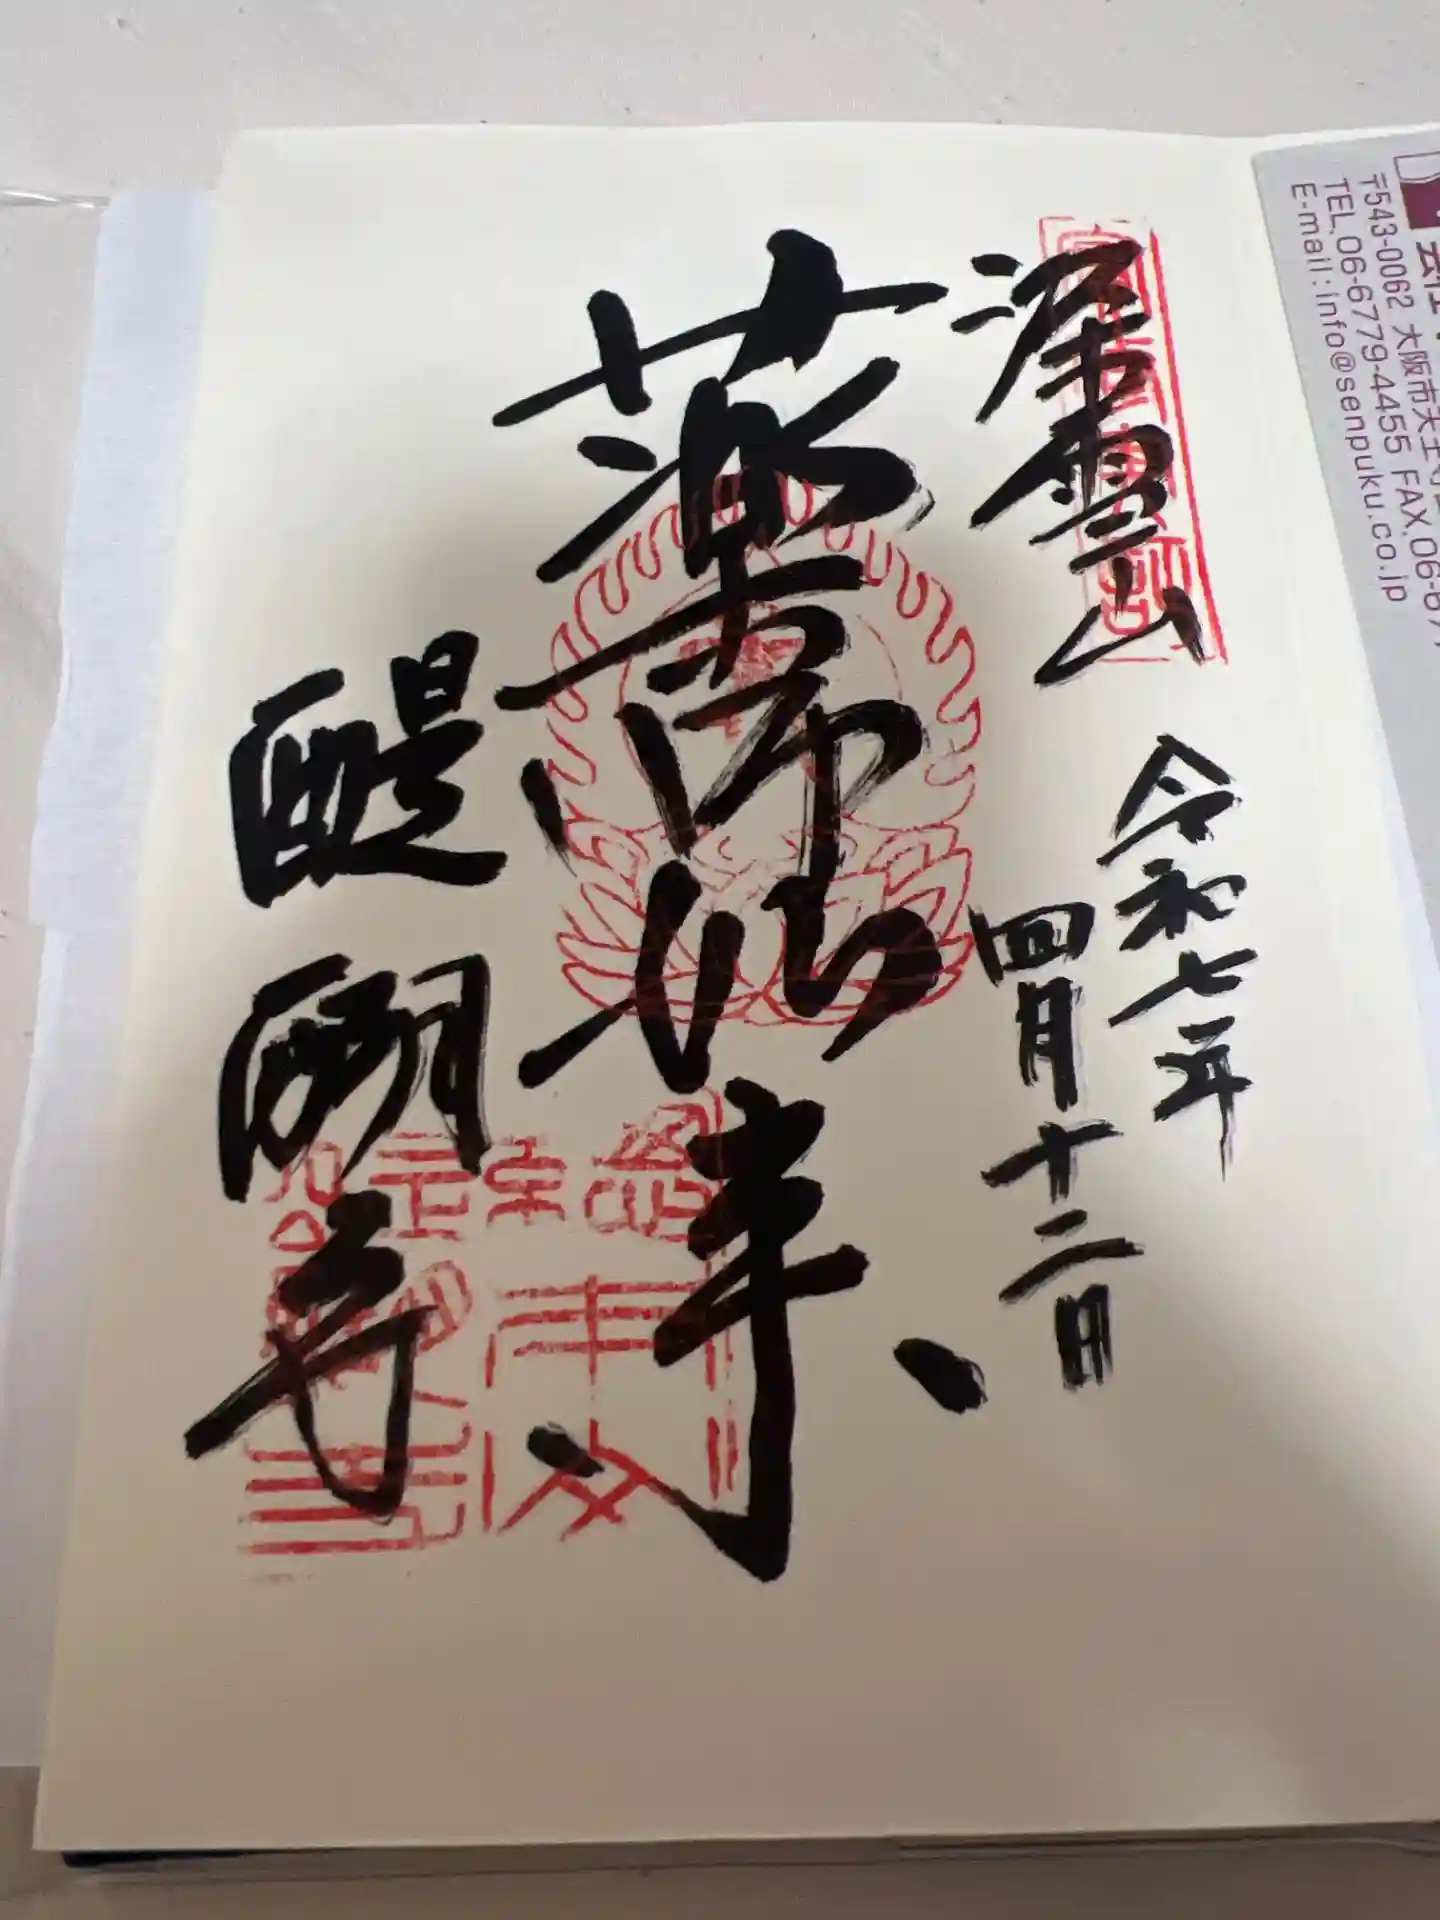 深雪山
令和七年
四月十二日
薬師如来
醍醐寺
〒543-0062 大阪市天王寺
TEL.06-6779-4455 FAX.06-67
E-mail:info@senpuku.co.jp